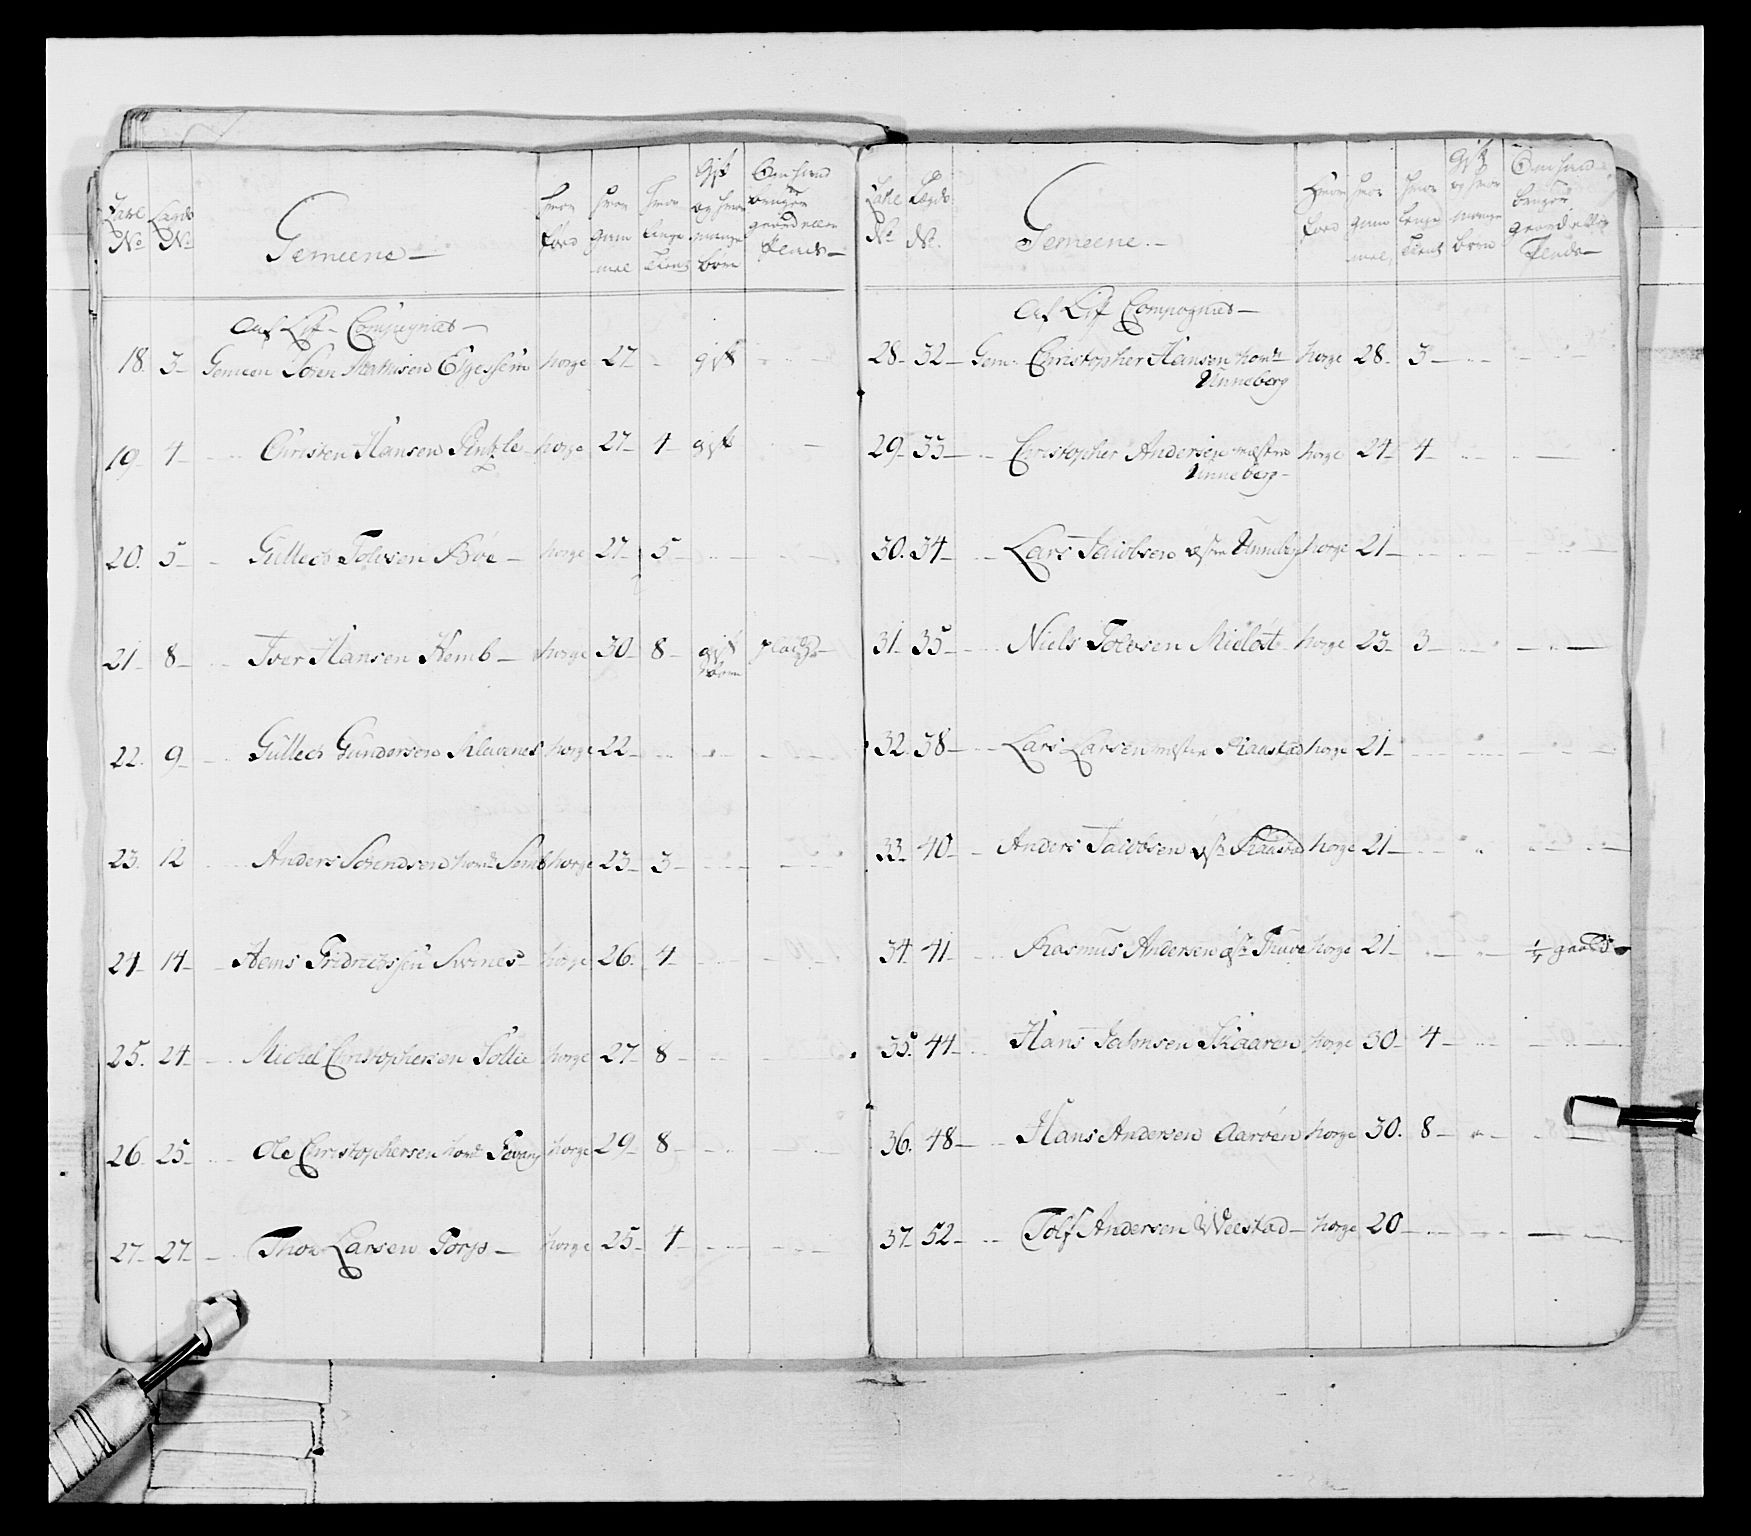 Lægds
No No
Gemeene —
hvor
fød
hvor
gam
mel
hvor
lenge
tient
Gift
og hvor
mange
børn
Om hand
bruger
gaard eller
Plads —
Aaf Lif - Compagniet —
18. 3 — Gemeen Sören Mathisen Elgessem norge 27 — gift
19 — 4 — Christen Hansen norge 27 — 4 — gift
20. 5 — Gullech Tolvsen Bøe — norge 27 5 —
21 — 8 — Iver Hansen Kemb — norge 30 — 8 — gift plads —
børn
22. 9 — Gullech Gundersen Klavenes norge 22 —
23. 12 Anders Sörensen Semb norge 23 — 3 —
24 — 14 — Hans Fridrichsen Svines — norge 26. 4 —
25. 24 — Michel Christophersen Sollie norge 27 — 8 —
26. 25 — Ole Christophersen norge 29 — 8 —
27 — 27 — Thor Larsen Torp — norge 25 — 4 —
Lægds
No No.
Gemeene. —
Hvor
fød
hvor
gam
mel,
hvor
lenge
tient
Gift
og hvor
mange
børn
Om hand
bruger
gaard eller
Plads —
Af Lif Compagniet —
28 — 32 — Gem. Christopher Hansen norge 28 — 3 —
Unneberg
29 — 33 — Christopher Andersen norge 24 — 4 —
Unneberg —
30. 34 — Lars Jacobsen Unneberg norge 21 —
31 — 35 — Niels Tolvsen norge 23 — 3 —
32. 38 — Lars Larsen Raastad norge 21 —
33 — 40 — Anders Jacobsen Raastad norge 21 —
34. 41 — Rasmus Andersen norge 21 — gaard
35. 44 — Hans Skaaren norge 30 — 4 —
36. 48 — Hans Andersen Aaröen norge 30. 8 —
37 — 52 — Tolf Andersen Weestad — norge 20 —